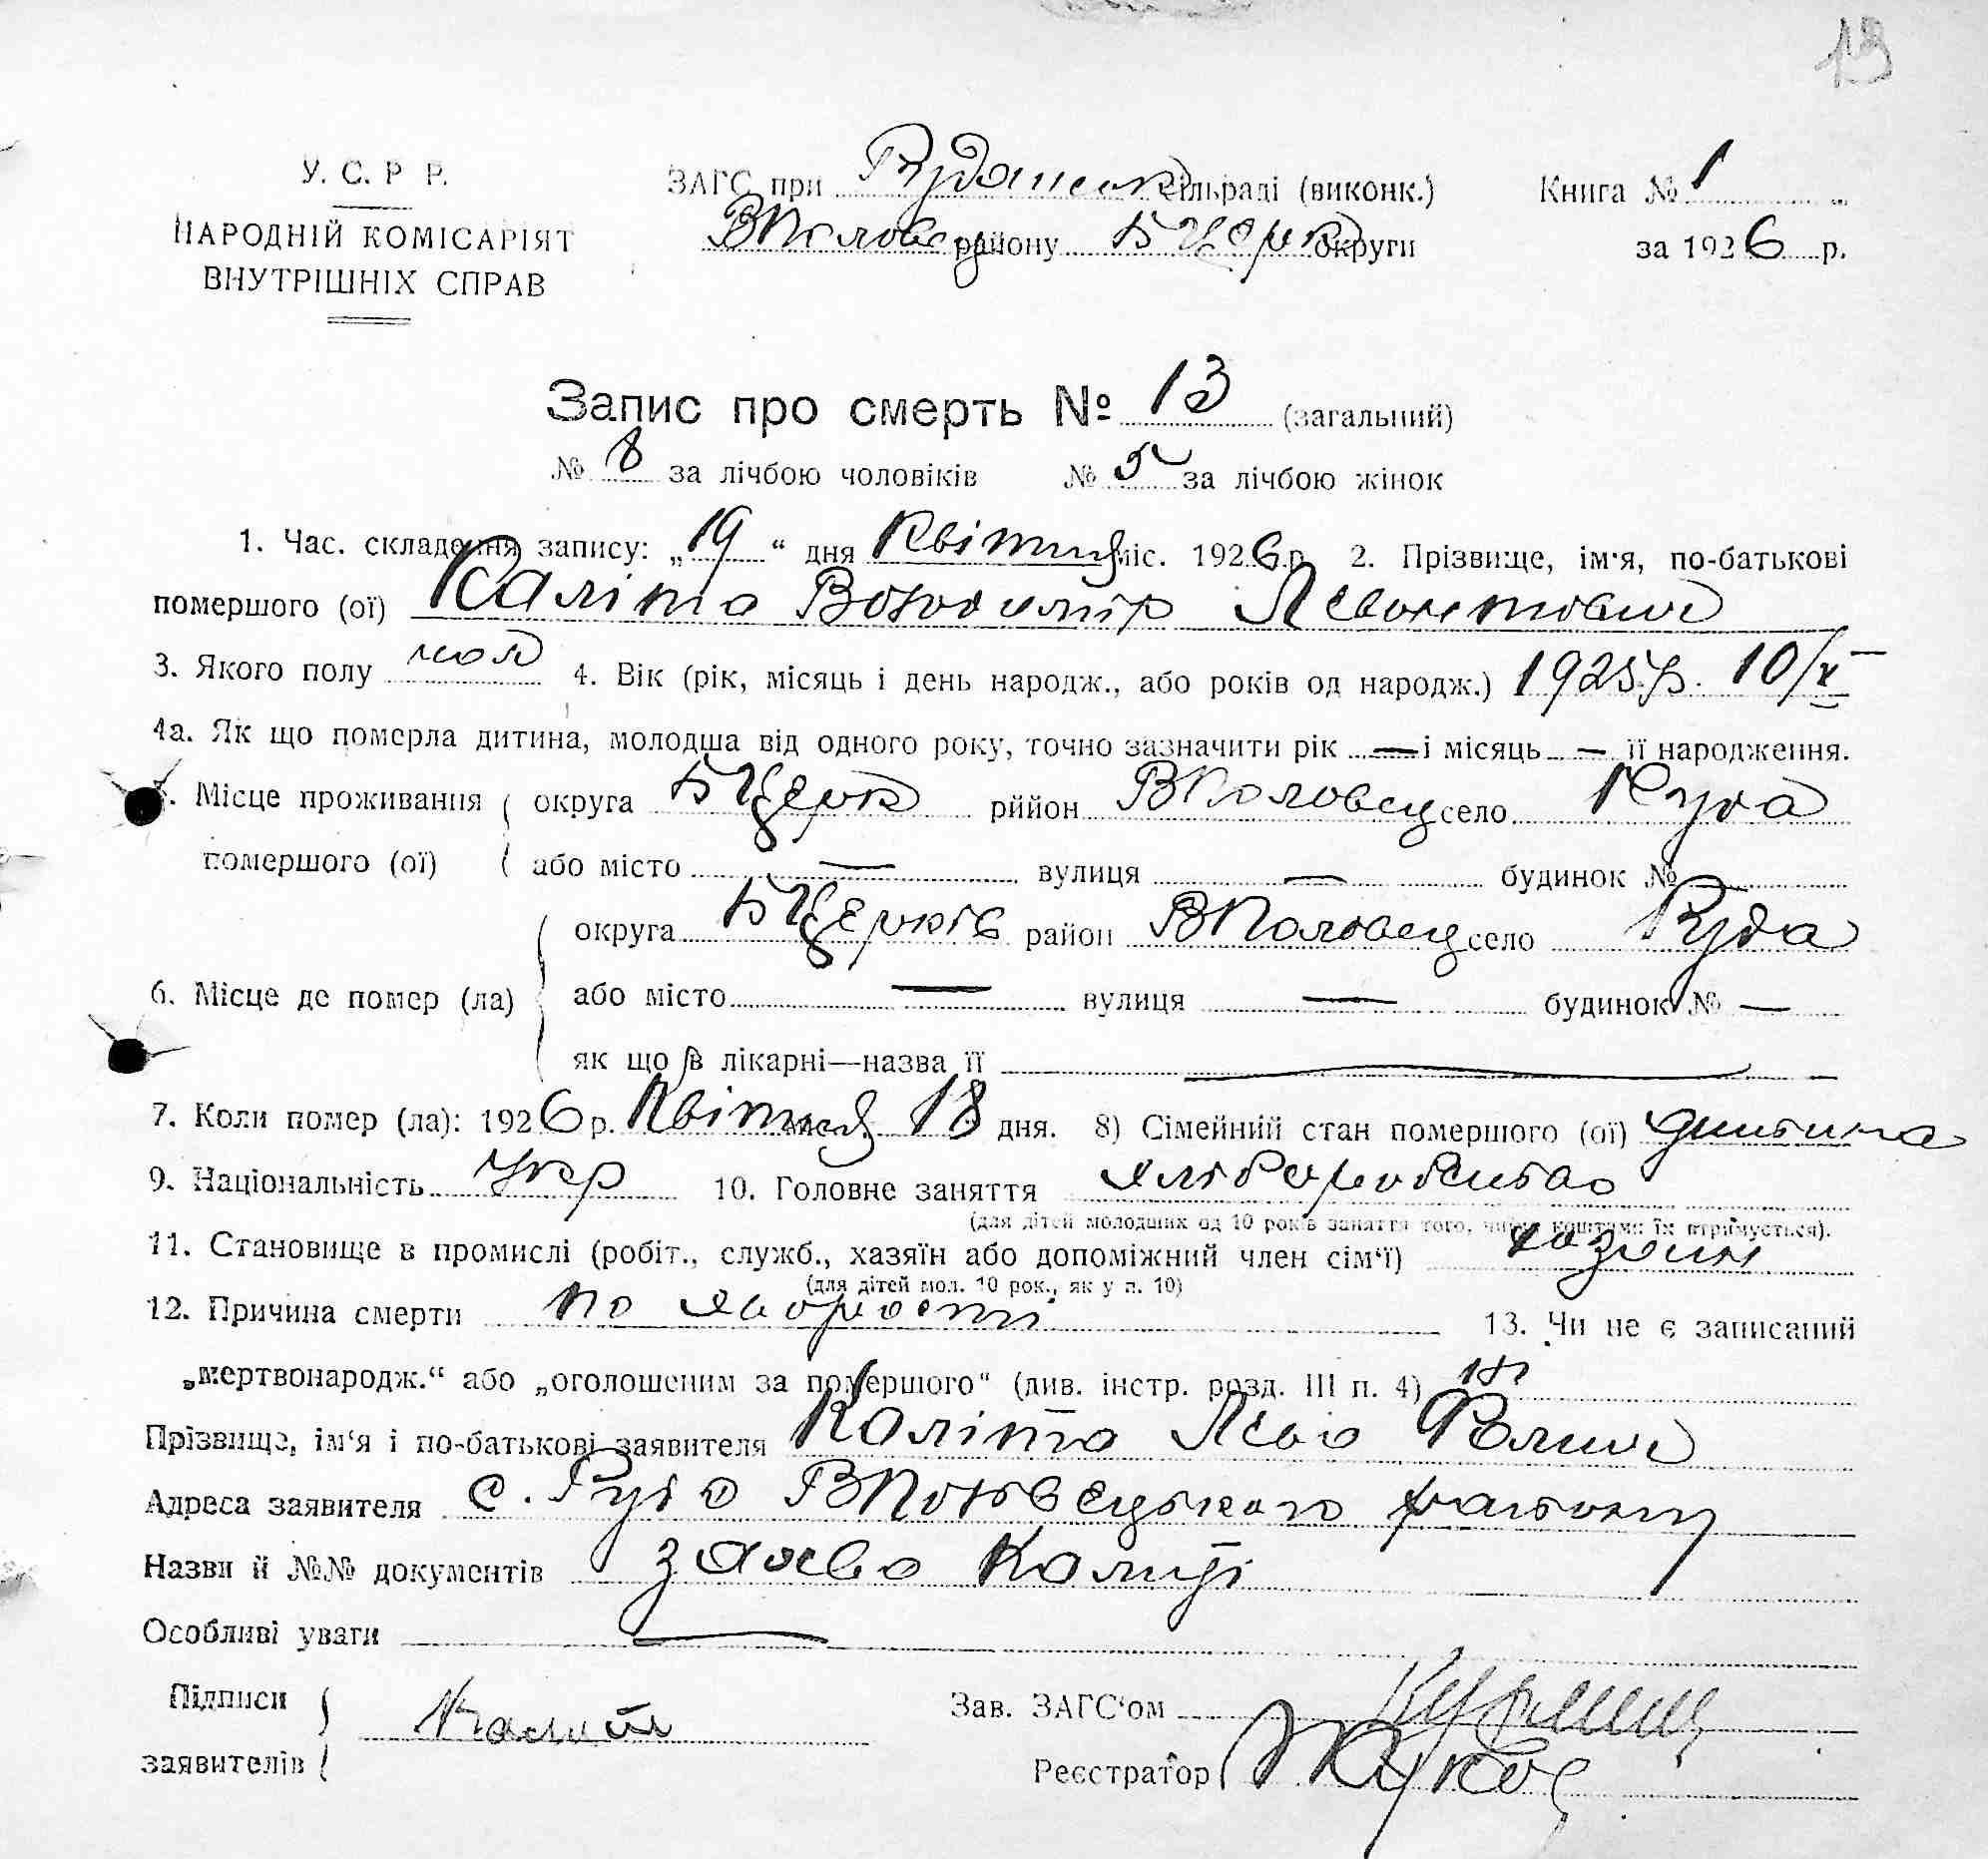 19
У. С. Р Р.
НАРОДНІЙ КОМІСАРІЯТ
ВНУТРІШНІХ СПРАВ
ЗАГС при Рудянськ сільраді (виконк.)
ВПоловец району БЦерк округи
Книга № 1
за 1926 р.
Запис про смерть № 13 (загальний)
№ 8 за лічбою чоловіків № 5 за лічбою жінок
1. Час. складення запису: „19“ дня Квітня міс. 1926 р. 2. Прізвище, ім'я, по-батькові
помершого (ої) Каліта Володимір Левонтович
3. Якого полу чол 4. Вік (рік, місяць і день народж., або років од народж.) 1925 р. 10/X
4а. Як що померла дитина, молодша від одного року, точно зазначити рік — і місяць — її народження.
5. Місце проживання округа БЦерк рййон ВПоловец село Руда
помершого (ої) або місто — вулиця — будинок № —
округа БЦерків район ВПоловец село Руда
6. Місце де помер (ла) або місто — вулиця — будинок № —
як що в лікарні—назва її —
7. Коли помер (ла): 1926 р. Квітня міс. 18 дня. 8) Сімейний стан помершого (ої) дитина
9. Національність Укр 10. Головне заняття хліборобство
(для дітей молодших од 10 років заняття того, чиїми коштами їх втримується).
11. Становище в промислі (робіт., служб., хазяїн або допоміжний член сім'ї) хазяин
(для дітей мол. 10 рок., як у п. 10)
12. Причина смерти по хворості 13. Чи не є записаний
„мертвонародж.“ або „оголошеним за помершого“ (див. інстр. розд. III п. 4) ні
Прізвище, ім'я і по-батькові заявителя Каліта Лево
Адреса заявителя с. Руда ВПоловецького району
Назви й №№ документів заява Каліці
Особливі уваги —
Підписи заявителів Калита
Зав. ЗАГС'ом
Реєстратор